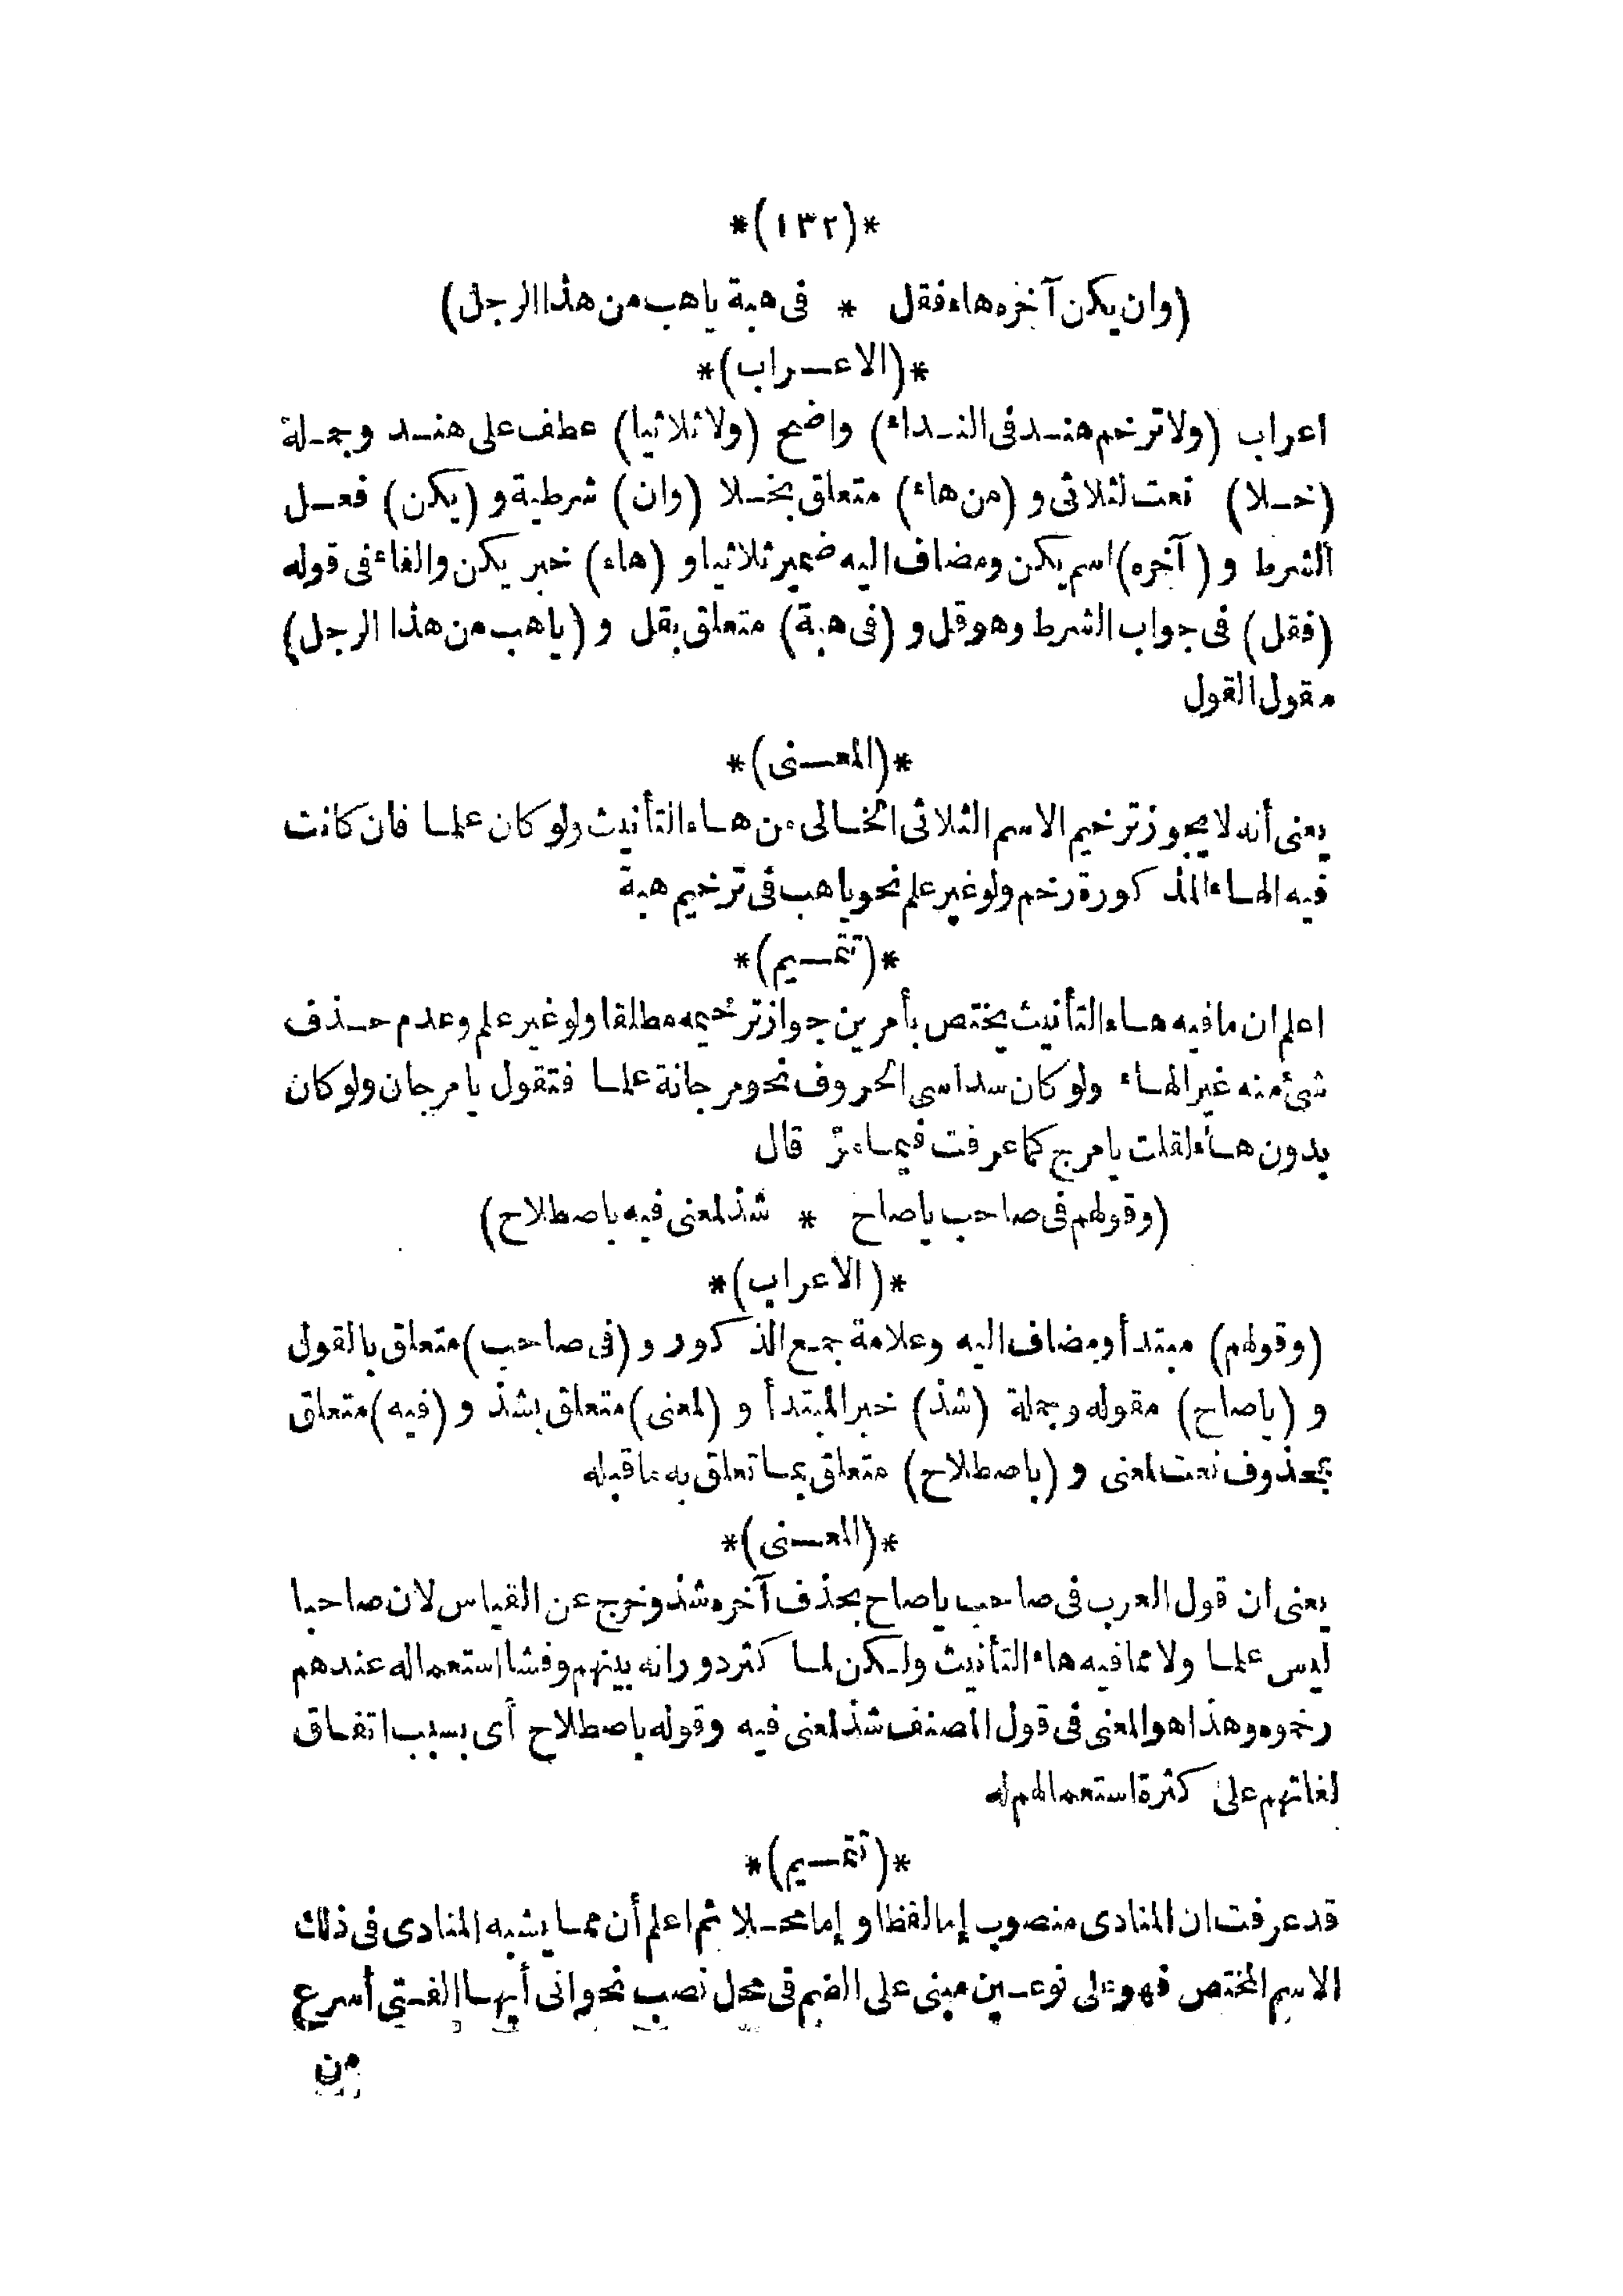 *(١٣٢)*
(وان يكن آخره هاء فقل * فى هبة ياهب من هذا الرجل)
*(الاعراب)*
اعراب (ولا ترخم هند فى النداء) واضح (ولا ثلاثيا) عطف على هند وجملة
(خلا) نعت لثلاثى و (من هاء) متعلق بخلا (وان) شرطية و (يكن) فعل
الشرط و (آخره) اسم يكن ومضاف اليه ضمير ثلاثيا و (هاء) خبر يكن والفاء فى قوله
(فقل) فى جواب الشرط وهو قل و (فى هبة) متعلق بقل و (ياهب من هذا الرجل)
مقول القول
*(المعنى)*
يعنى أنه لا يجوز ترخيم الاسم الثلاثى الخالى من هاء التأنيث ولو كان علما فان كانت
فيه الهاء المذكورة رخم ولو غير علم نحو ياهب فى ترخيم هبة
*(تقسيم)*
اعلم ان ما فيه هاء التأنيث يختص بأمرين جواز ترخيمه مطلقا ولو غير علم وعدم حذف
شئ منه غير الهاء ولو كان سداسى الحروف نحو مرجانة علما فتقول يا مرجان ولو كان
بدون هاء لقلت يا مرج كما عرفت فيما مرّ قال
(وقولهم فى صاحب ياصاح * شذ لمعنى فيه باصطلاح)
*(الاعراب)*
(وقولهم) مبتدأ ومضاف اليه وعلامة جمع الذكور و (فى صاحب) متعلق بالقول
و (ياصاح) مقوله وجملة (شذ) خبر المبتدأ و (لمعنى) متعلق بشذ و (فيه) متعلق
بمحذوف نعت لمعنى و (باصطلاح) متعلق بما تعلق به ما قبله
*(المعنى)*
يعنى ان قول العرب فى صاحب ياصاح بحذف آخره شذ وخرج عن القياس لان صاحبا
ليس علما ولا مما فيه هاء التأنيث ولكن لما كثر دورانه بينهم وفشا استعماله عندهم
رخموه وهذا هو المعنى فى قول المصنف شذ لمعنى فيه وقوله باصطلاح أى بسبب اتفاق
لغاتهم على كثرة استعمالهم له
*(تقسيم)*
قد عرفت ان المنادى منصوب إما لفظا و إما محلا ثم اعلم أن مما يشبه المنادى فى ذلك
الاسم المختص فهو على نوعين مبنى على الضم فى محل نصب نحو انى أيها الفتى أسرع
من